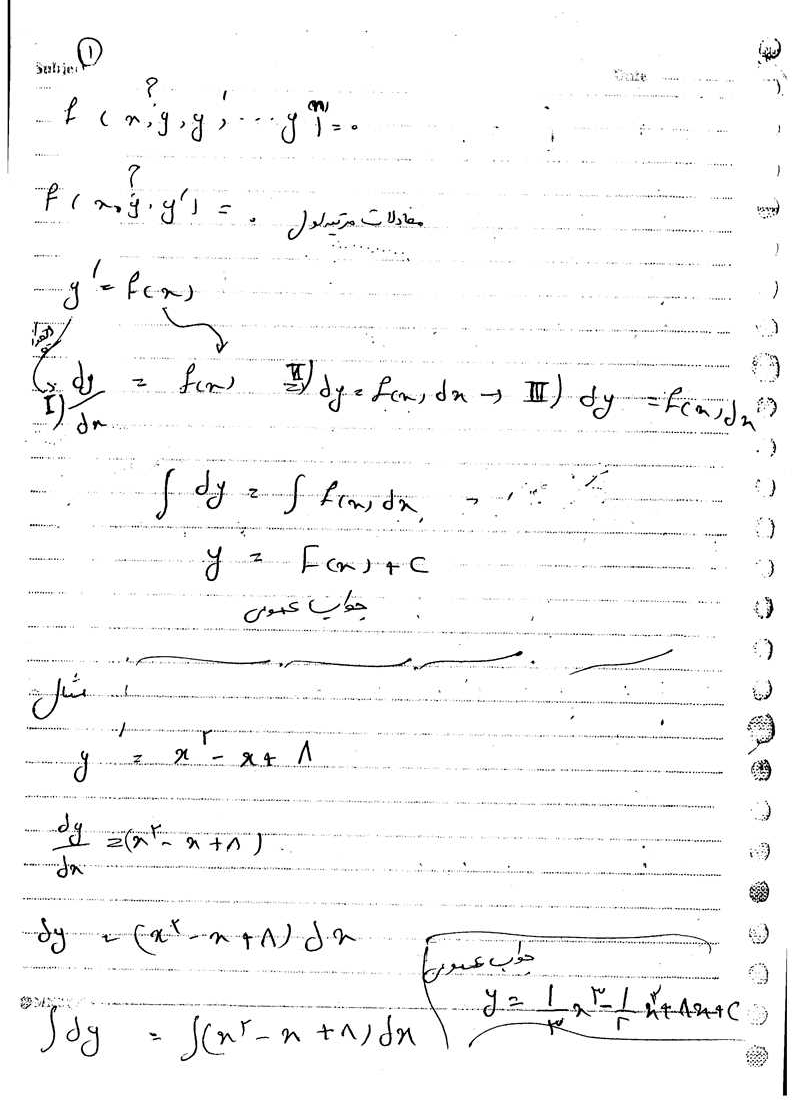 Subject ①
Date
?
f(x, y, y', ... y⁽ⁿ⁾) = ۰
?
f(x, y, y') = ۰ معادلات مرتبه اول
y' = f(x)
I) dy/dx = f(x) II) dy = f(x) dx → III) dy = f(x) dx
∫ dy = ∫ f(x) dx
y = F(x) + C
جواب عمومی
مثال
y' = x² - x + ۸
dy/dx = (x² - x + ۸)
dy = (x² - x + ۸) dx
∫ dy = ∫ (x² - x + ۸) dx
جواب عمومی
y = ۱/۳ x³ - ۱/۲ x² + ۸x + C